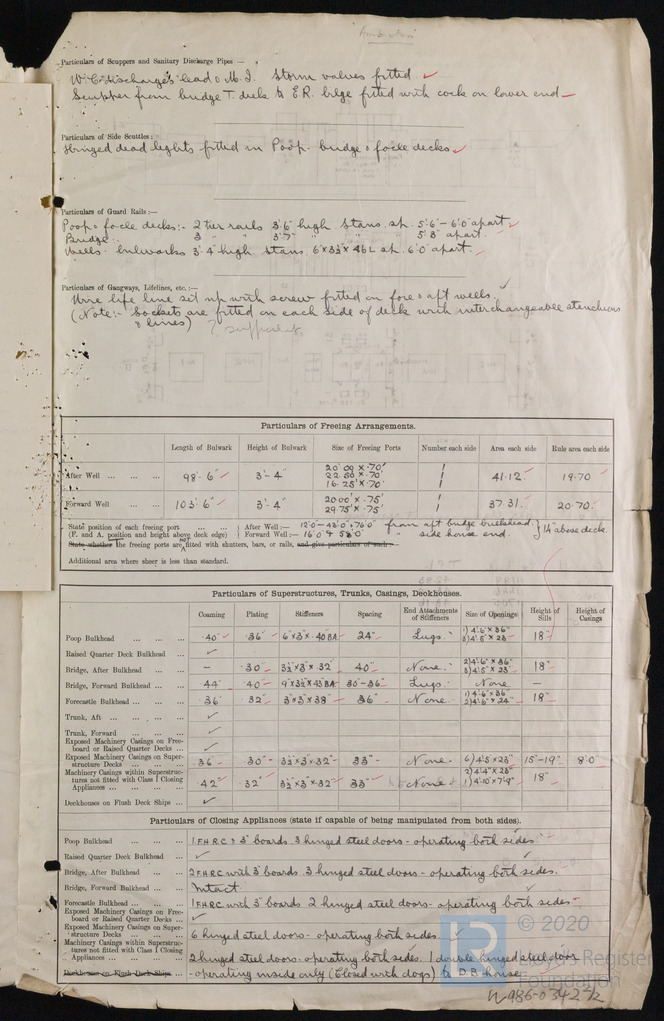 Particulars of Scuppers and Sanitary Discharge Pipes —
W.C. discharges lead & M.I. storm valves fitted.
Scupper from bridge T. deck to E.R. bilge fitted with cock on lower end
Particulars of Side Scuttles:
Hinged dead lights fitted in Poop, bridge & focle decks
Particulars of Guard Rails:—
Poop & focle decks:- 2 tier rails 3'.6" high stans sp. 5'.6" - 6'.0" apart,
Bridge.. 3 " " 3'.7" " " 5'.3" apart.
Wells - bulwarks 3'.4" high stans 6" x 3½" x .46 L sp. 6'.0" apart.
Particulars of Gangways, Lifelines, etc.:—
Wire life line set up with screw fitted on fore & aft wells.
(Note:- Sockets are fitted on each side of deck with interchangeable stanchions
& lines)
Particulars of Freeing Arrangements.
Length of Bulwark Height of Bulwark Size of Freeing Ports Number each side Area each side Rule area each side
After Well ... ... ... 98'.6" 3'-4" 20'.00 x .70' 1 41.12. 19.70
22.50 x .70' 1
16.25' x .70 1
Forward Well ... ... 103'.6" 3'-4" 20.00' x .75' 1 37.31. 20.70.
29.75' x .75' 1
State position of each freeing port ... ... After Well:— 12'0"-43'.0" & 76'0" from aft bridge bulkhead. 14 above deck.
(F. and A. position and height above deck edge) Forward Well:— 16'.0" & 58'0" " side house end.
State whether the freeing ports are not fitted with shutters, bars, or rails, and give particulars of such:-
Additional area where sheer is less than standard.
Particulars of Superstructures, Trunks, Casings, Deckhouses.
Coaming Plating Stiffeners Spacing End Attachments of Stiffeners Size of Openings Height of Sills Height of Casings
Poop Bulkhead ... ... ... .40" .36" 6" x 3" x .40 BA 24" Lugs. 1) 4'.6" x 36" 18"
3) 4'.5" x 23"
Raised Quarter Deck Bulkhead ...
Bridge, After Bulkhead ... ... — .30" 3½" x 3" x .32" 40" None. 2) 4'.6" x 36" 18"
3) 4'.5" x 23"
Bridge, Forward Bulkhead ... ... .44" .40" 9" x 3½" x .43 BA 30"-36" Lugs. None —
Forecastle Bulkhead ... ... ... .36" .32" 3" x 3" x .38" 36" None. 1) 4'.6" x 36" 18"
2) 4'.6" x 24"
Trunk, Aft ... ... ... ...
Trunk, Forward ... ... ...
Exposed Machinery Casings on Free-
board or Raised Quarter Decks ...
Exposed Machinery Casings on Super-
structure Decks ... ... ... .36" .30" 3½ x 3" x .32" 33" None. 6) 4'.5 x 23" 15"-19" 8'.0"
Machinery Casings within Superstruc-
tures not fitted with Class 1 Closing
Appliances ... ... ... .42" .32" 3½ x 3" x .32" 33" None. 2) 4'.4" x 23" 18"
1) 4'.10" x 7'.9"
Deckhouses on Flush Deck Ships ...
Particulars of Closing Appliances (state if capable of being manipulated from both sides).
Poop Bulkhead ... ... ... 1 F.H.R.C. & 3" boards. 3 hinged steel doors - operating both sides
Raised Quarter Deck Bulkhead ...
Bridge, After Bulkhead ... ... 2 F.H.R.C. with 3" boards. 3 hinged steel doors - operating both sides.
Bridge, Forward Bulkhead ... ... Intact.
Forecastle Bulkhead ... ... ... 1 F.H.R.C. with 3" boards 2 hinged steel doors - operating both sides-
Exposed Machinery Casings on Free-
board or Raised Quarter Decks ...
Exposed Machinery Casings on Super-
structure Decks ... ... ... 6 hinged steel doors - operating both sides
Machinery Casings within Superstruc-
tures not fitted with Class 1 Closing
Appliances ... ... ... 2 hinged steel doors - operating both sides. 1 double hinged steel door
Deckhouses on Flush Deck Ships ... - operating inside only (Closed with dogs) to D.B. house.
© 2020
Lloyd's Register
Foundation
W986-0342 ½